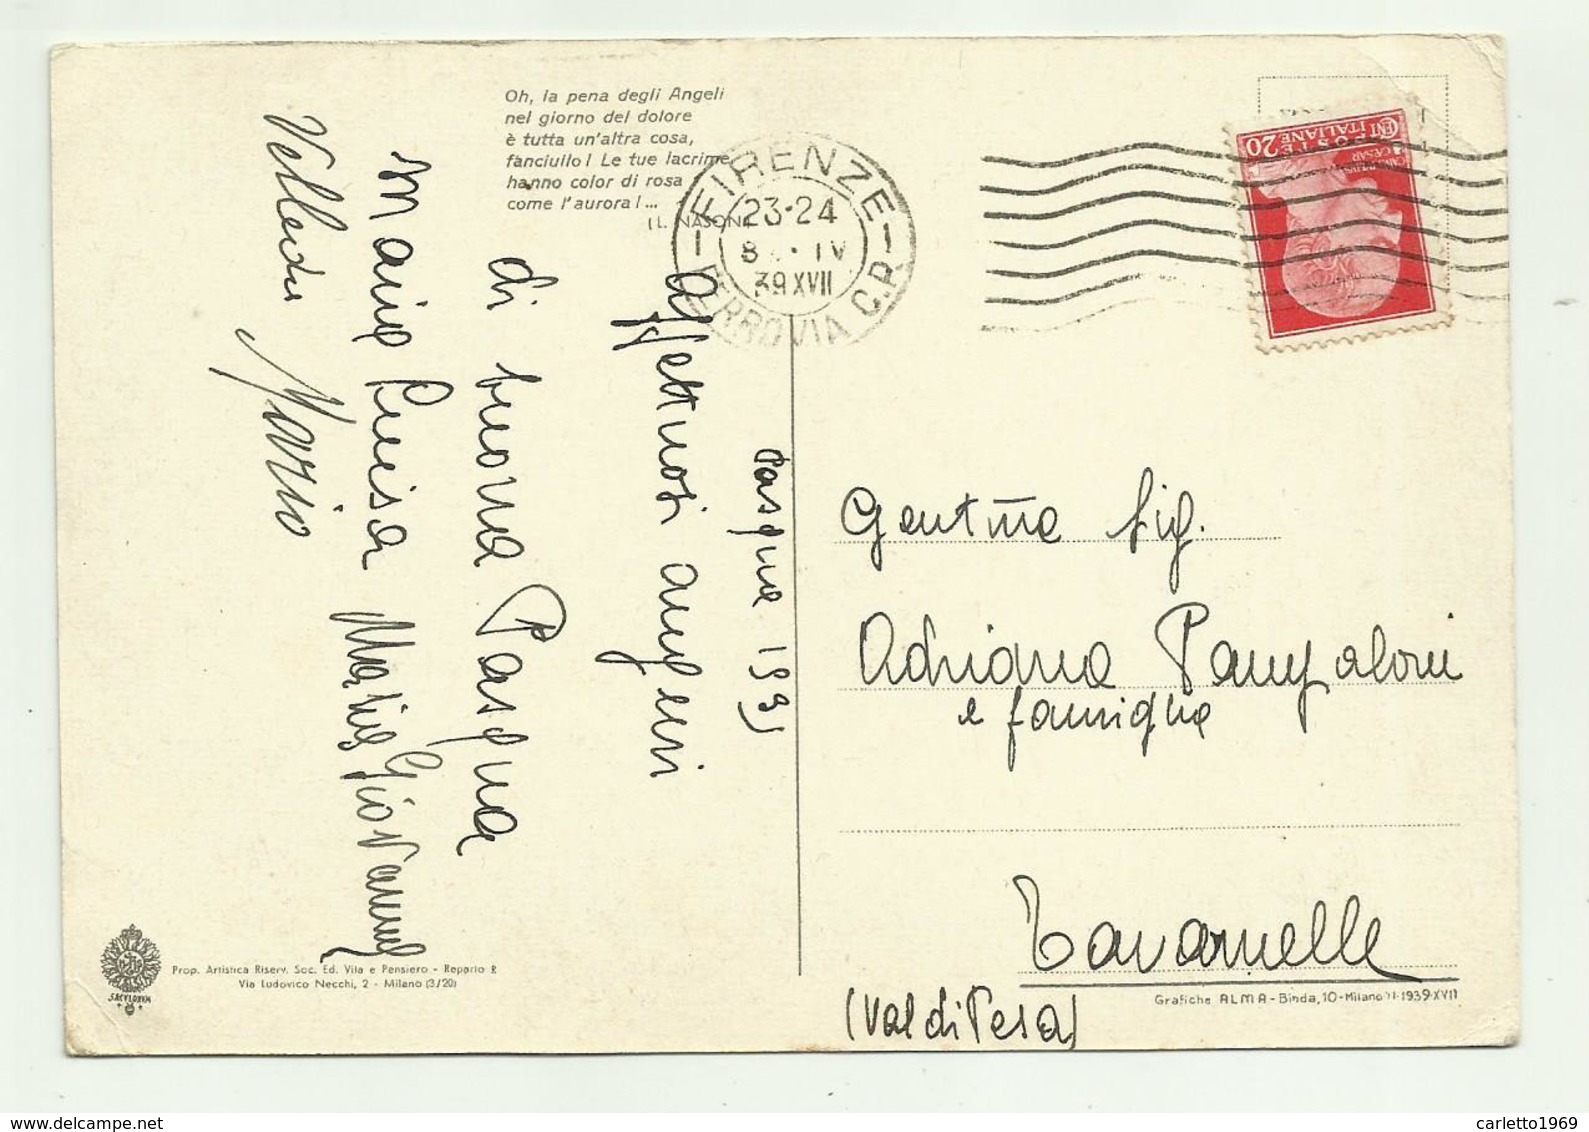 Oh, la pena degli Angeli
nel giorno del dolore
è tutta un'altra cosa,
fanciullo! Le tue lacrime
hanno color di rosa
come l'aurora!...
(L. NASON
FIRENZE
23-24
8 · IV
39 XVII
FERROVIA C.P.
POSTE ITALIANE
CENT 20
Pasqua 1939
affettuosi auguri
di buona Pasqua
Maria Luisa Maria Giovanna
Velleda Mario
Gent.ma Sig.
Adriana Pampaloni
e famiglia
Tavarnelle
(Val di Pesa)
Prop. Artistica Riserv. Soc. Ed. Vita e Pensiero - Reparto R
Via Ludovico Necchi, 2 - Milano (3/20)
Grafiche ALMA - Binda, 10 - Milano 1939-XVII
carletto1969